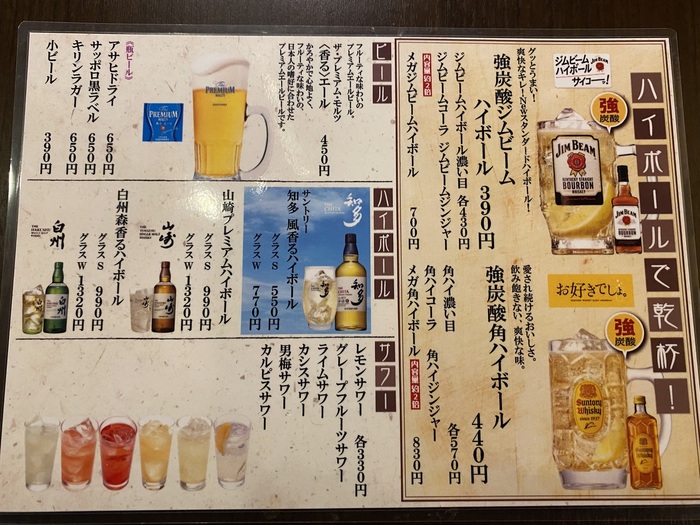 ハイボールで乾杯！
ジムビーム
ハイボール
サイコー！
強
炭酸
グッとうまい！
爽快なキレ！No.1スタンダードハイボール！
強炭酸ジムビーム
ハイボール 390円
ジムビームハイボール濃い目 各430円
ジムビームコーラ ジムビームジンジャー
内容量約2倍
メガジムビームハイボール 700円
JIM BEAM
BOURBON
お好きでしょ。
強
炭酸
愛され続けるおいしさ。
飲み飽きない、爽快な味。
強炭酸角ハイボール 440円
角ハイ濃い目 角ハイジンジャー 各570円
角ハイコーラ
メガ角ハイボール 内容量約2倍 830円
Suntory
Whisky
ビール
フルーティな味わいの
プレミアムエール。
ザ・プレミアム・モルツ
〈香る〉エール 450円
かろやかで心地よく、
フルーティな味わい。
日本人の嗜好に合わせた
プレミアムエールビールです。
PREMIUM
PREMIUM
《瓶ビール》
アサヒドライ 650円
サッポロ黒ラベル 650円
キリンラガー 650円
小ビール 390円
ハイボール
知多
サントリー
知多 風香るハイボール
グラスS 550円
グラスW 770円
山崎プレミアムハイボール
グラスS 990円
グラスW 1320円
山崎
白州森香るハイボール
グラスS 990円
グラスW 1320円
白州
サワー
レモンサワー 各330円
グレープフルーツサワー
ライムサワー
カシスサワー
男梅サワー
カルピスサワー